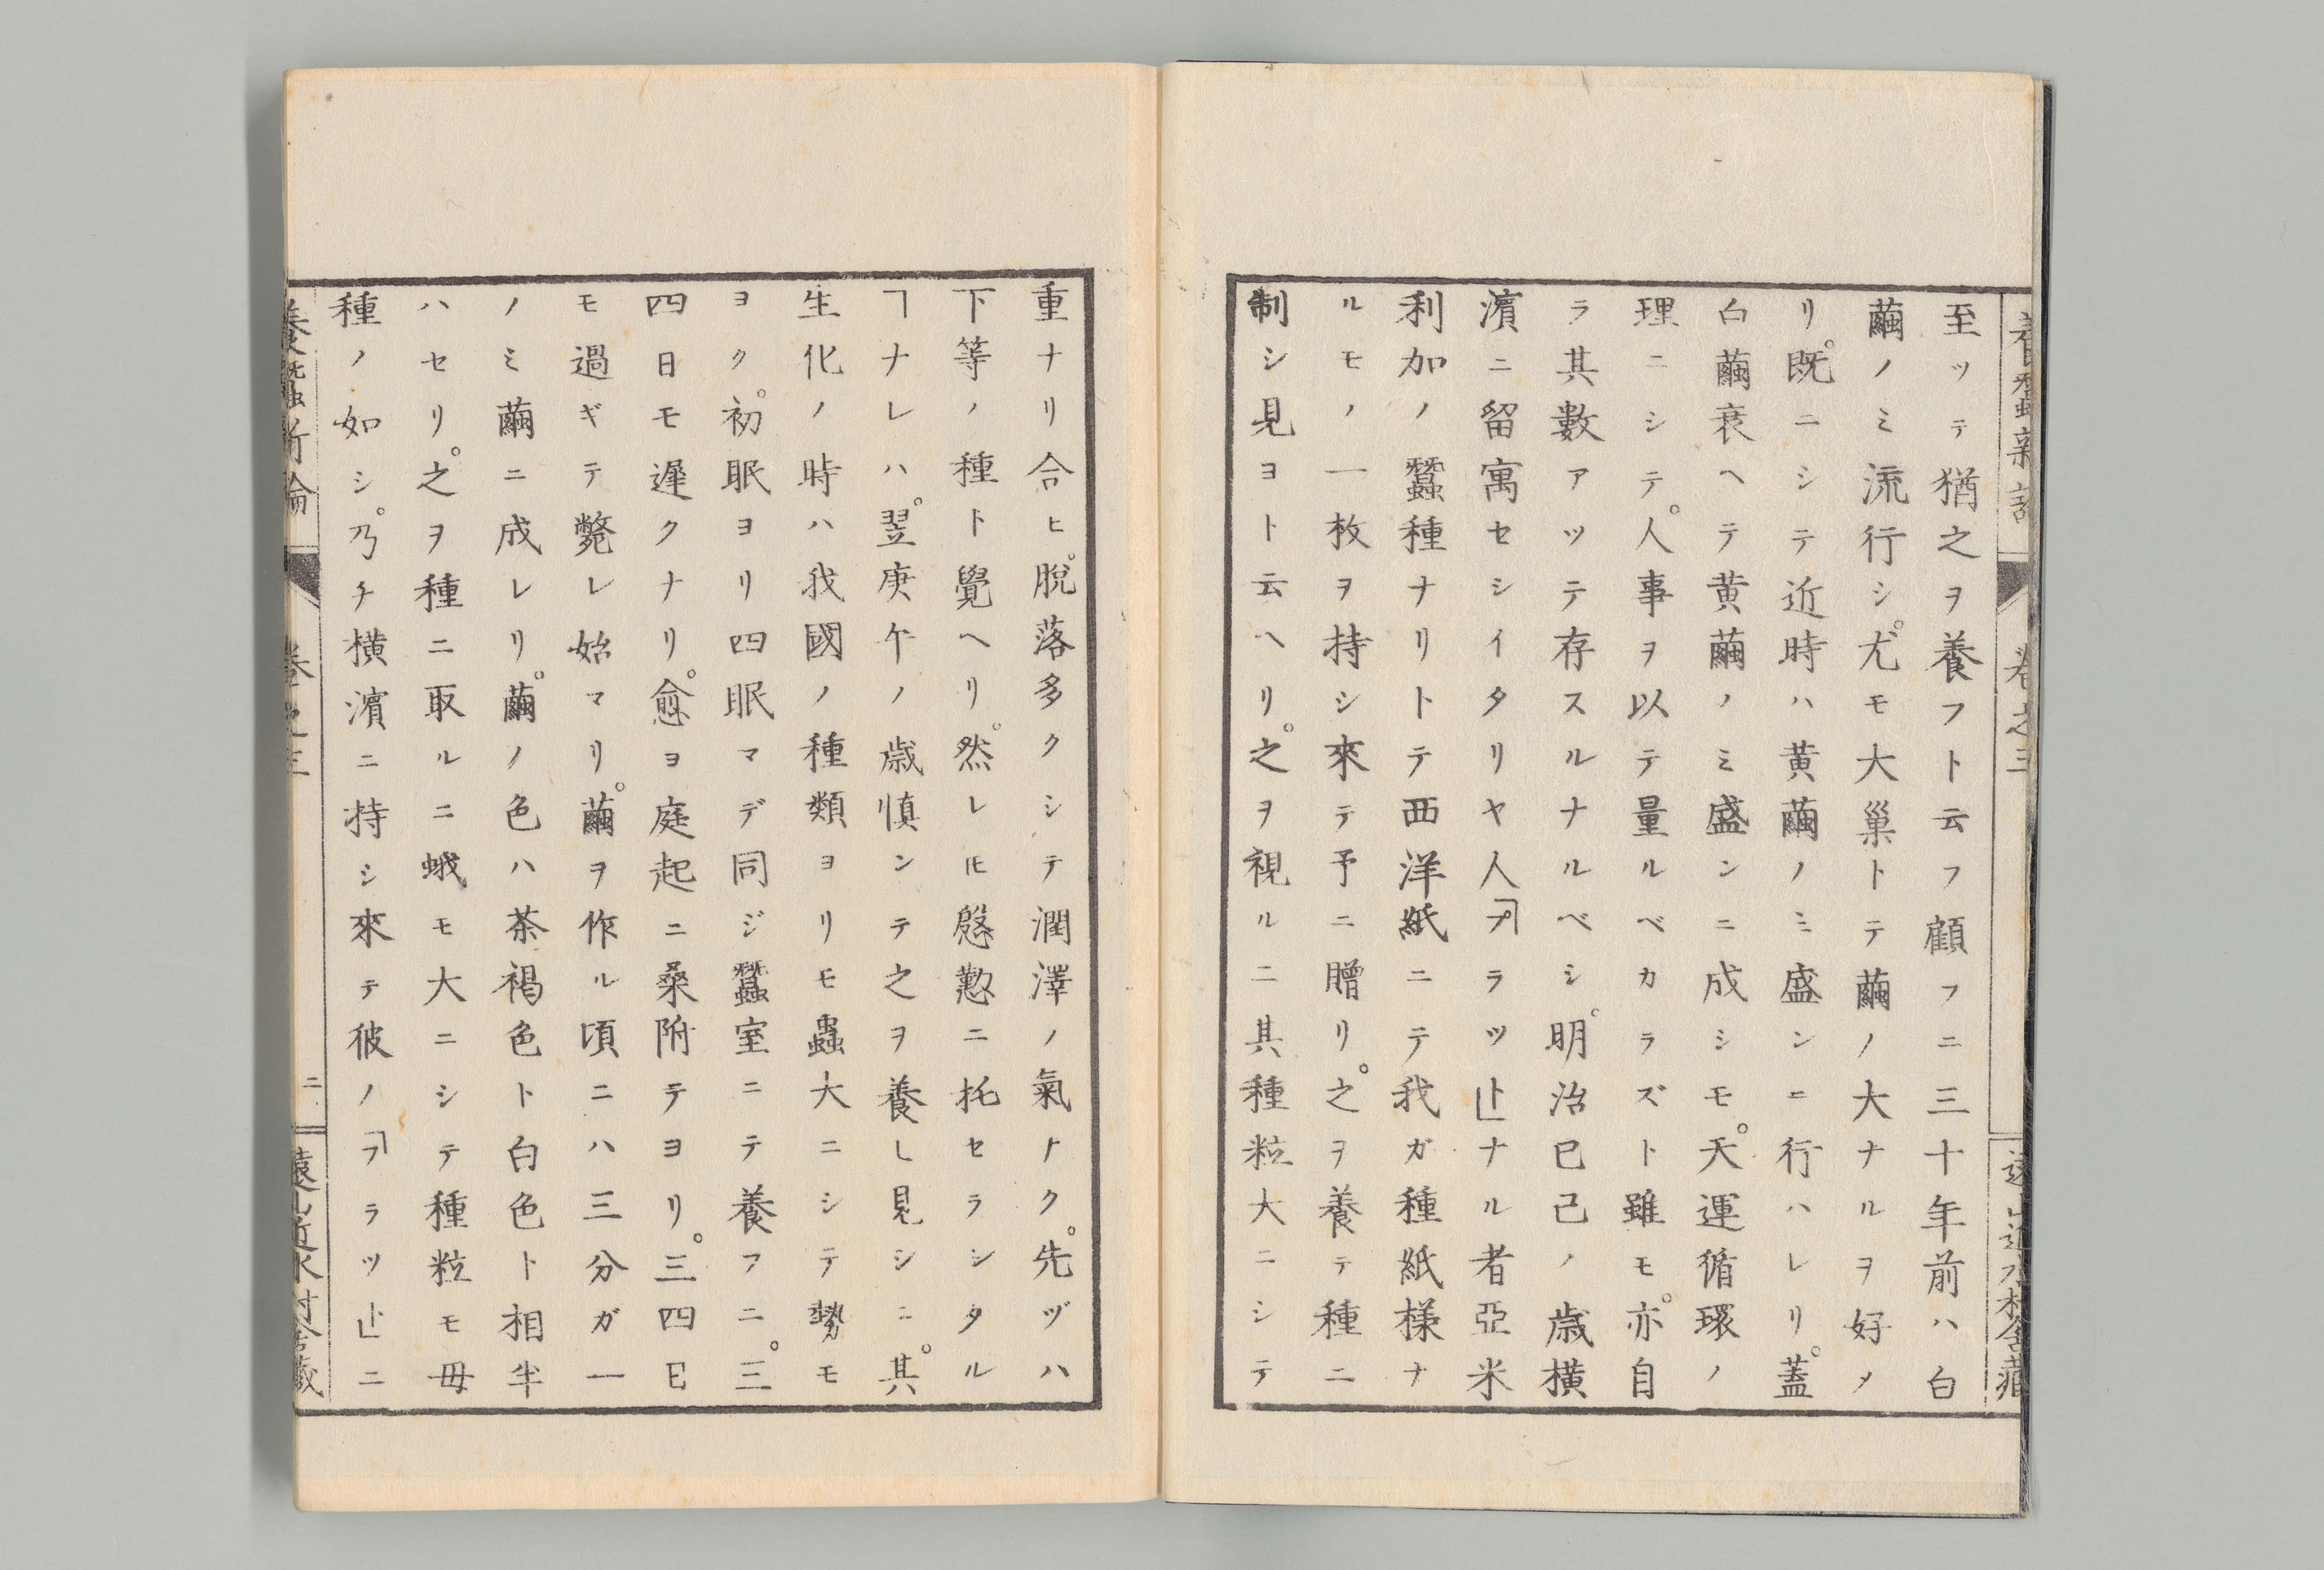 至ッテ猶之ヲ養フト云フ顧フニ三十年前ハ白
繭ノミ流行シ。尤モ大巢トテ繭ノ大ナルヲ好メ
リ。既ニシテ近時ハ黄繭ノミ盛ンニ行ハレリ。蓋
白繭衰ヘテ黄繭ノミ盛ンニ成シモ。天運循環ノ
理ニシテ。人事ヲ以テ量ルベカラズト雖モ。亦自
ラ其數アッテ存スルナルベシ。明治已己ノ歳横
濱ニ留寓セシイタリヤ人「プラット」ナル者亞米
利加ノ蠶種ナリトテ西洋紙ニテ我ガ種紙様ナ
ルモノ一枚ヲ持シ來テ予ニ贈リ。之ヲ養テ種ニ
制シ見ヨト云ヘリ。之ヲ視ルニ其種粒大ニシテ
重ナリ合ヒ。脱落多クシテ潤澤ノ氣ナク。先ヅハ
下等ノ種ト覺ヘリ。然レ𪜈慇懃ニ托セラシタル
ヿナレハ。翌庚午ノ歳慎ンテ之ヲ養し見シニ。其
生化ノ時ハ我國ノ種類ヨリモ蟲大ニシテ勢モ
ヨク。初眠ヨリ四眠マデ同ジ蠶室ニテ養フニ。三
四日モ遲クナリ。愈ヨ庭起ニ桑附テヨリ。三四日
モ過ギテ斃レ始マリ。繭ヲ作ル頃ニハ三分ガ一
ノミ繭ニ成レリ。繭ノ色ハ茶褐色ト白色ト相半
ハセリ。之ヲ種ニ取ルニ蛾モ大ニシテ種粒モ毋
種ノ如シ。乃チ横濱ニ持シ來テ彼ノ「フラット」ニ
養蠶新論
卷之三
二